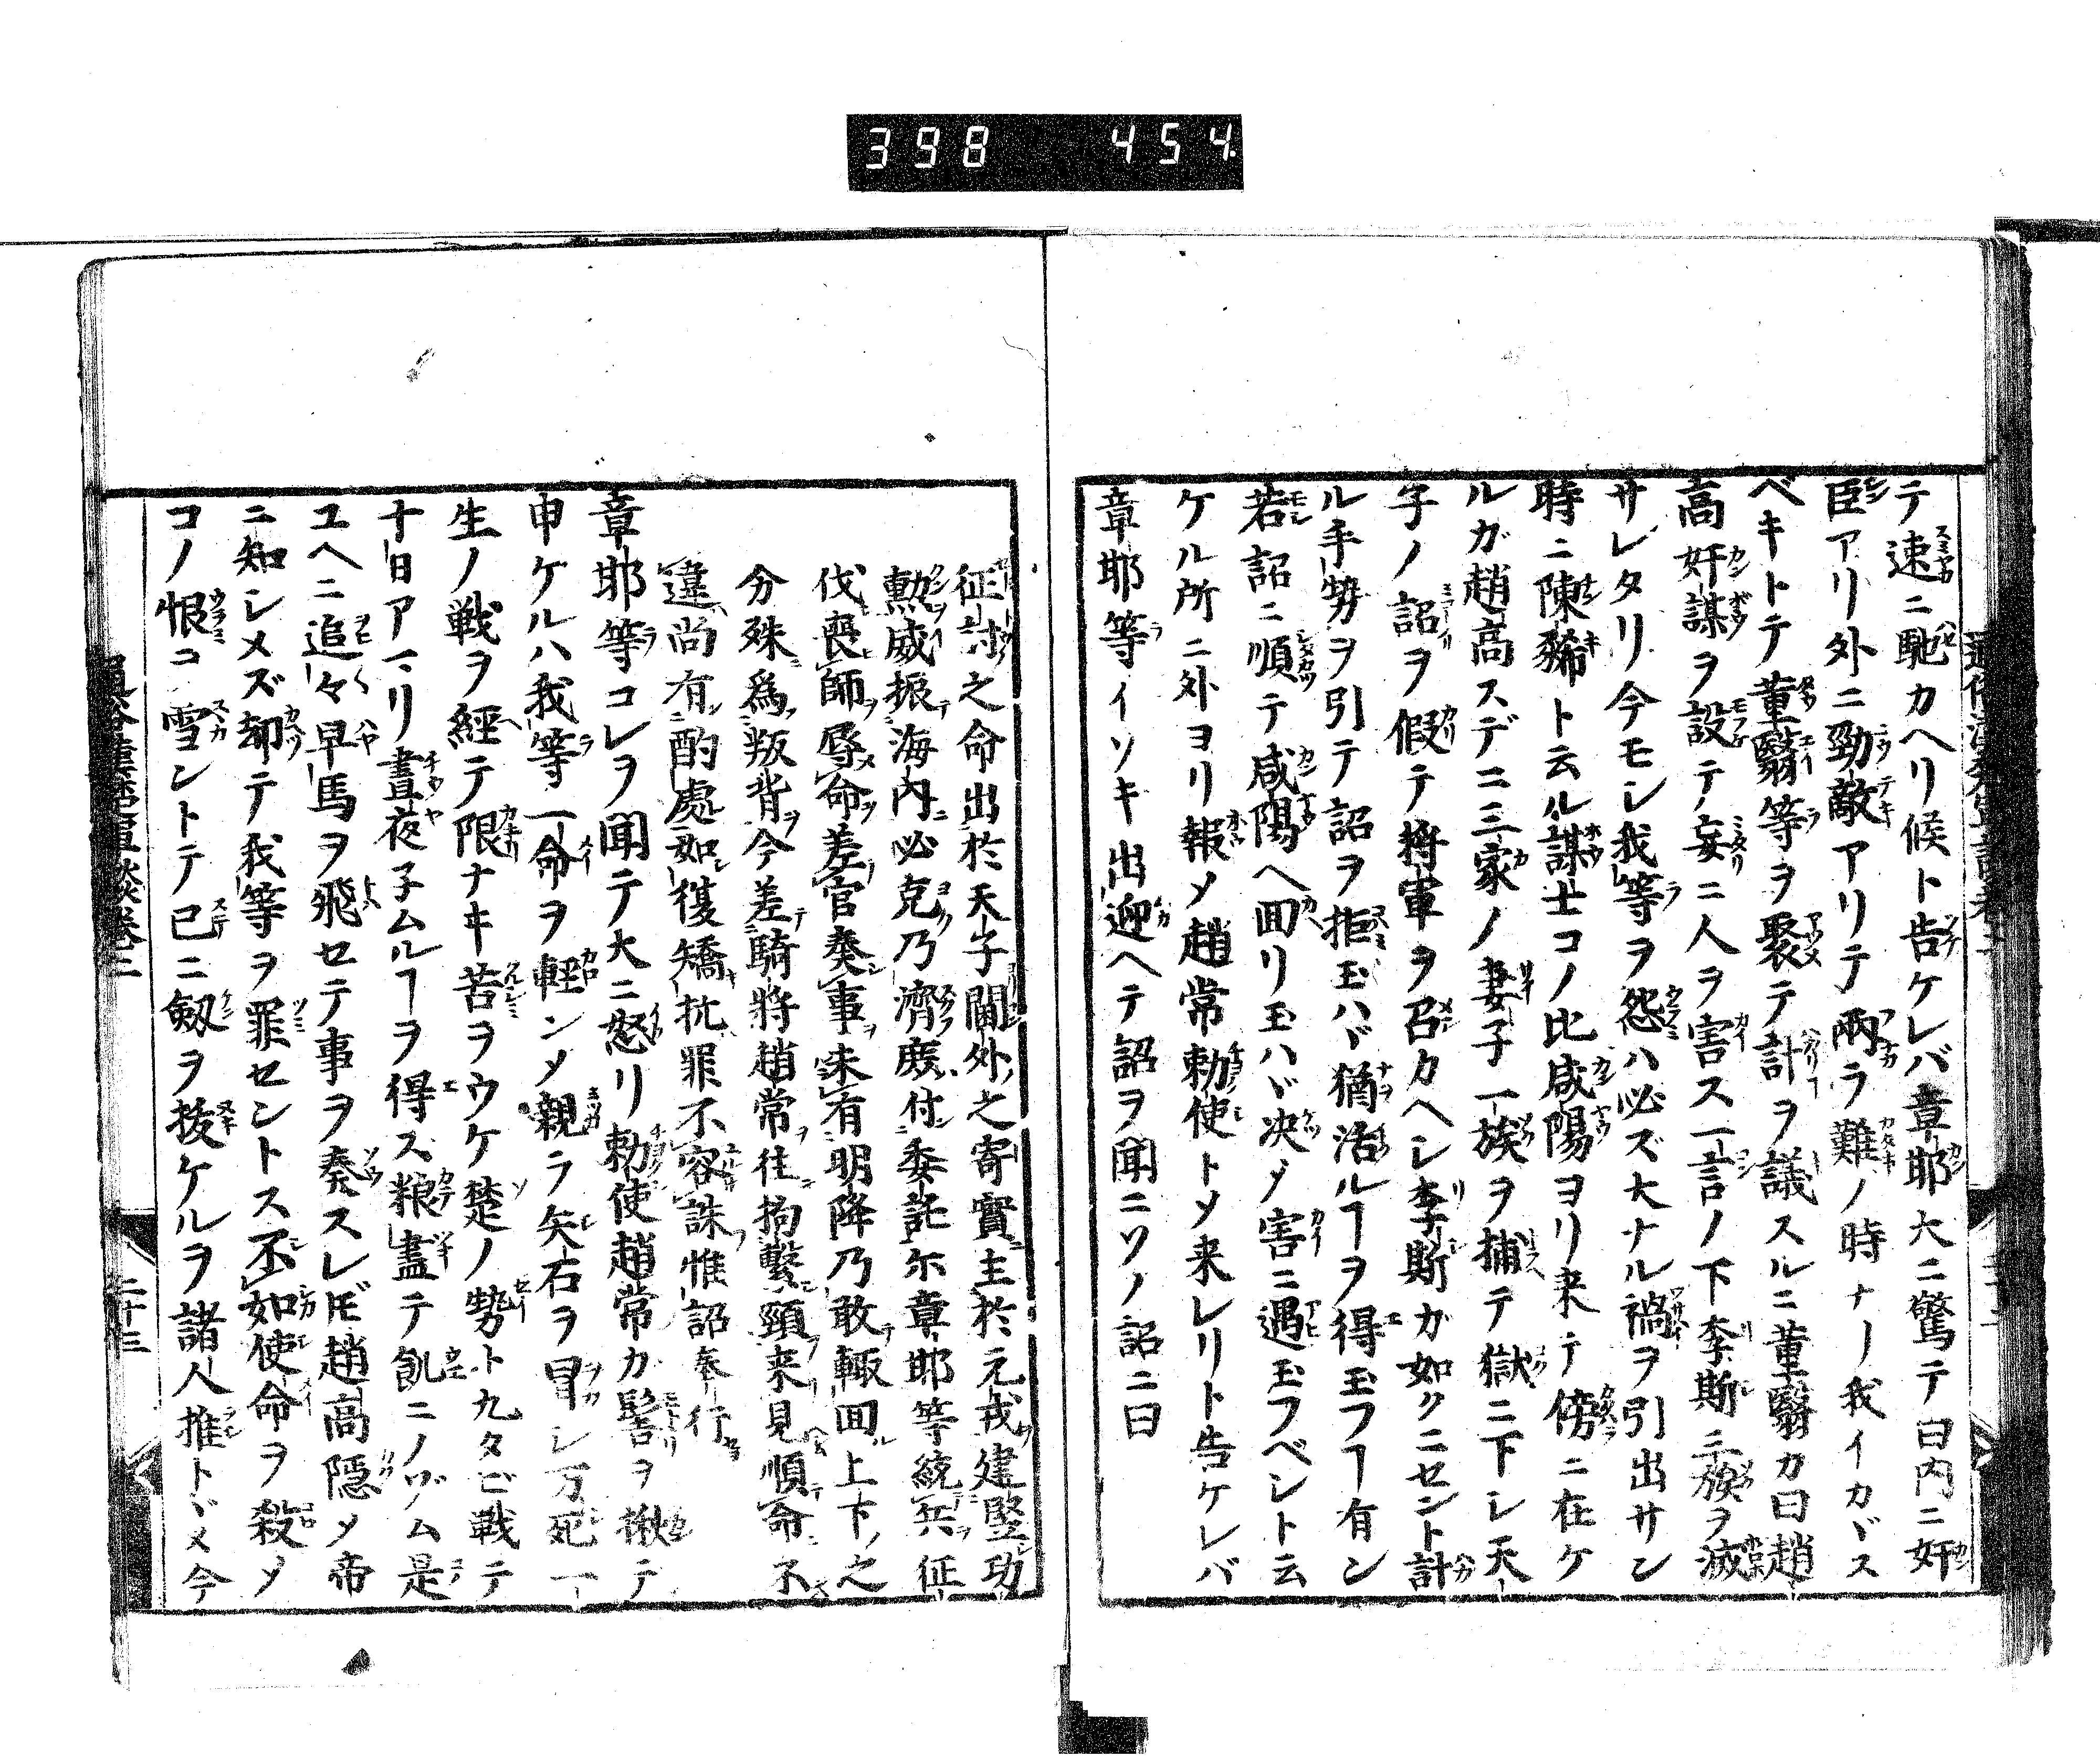 398 454
テ速ニ馳カヘリ候ト告ケレバ章邯大ニ驚テ曰内ニ奸
臣アリ外ニ勁敵アリテ兩ラ難ノ時ナノ我イカヾス
ベキトテ董翳等ヲ聚テ計ヲ議スルニ董翳カ曰趙
高奸謀ヲ設テ妄ニ人ヲ害ス一言ノ下李斯三族ヲ滅
サレタリ今モシ我等ヲ怨ハ必ズ大ナル禍ヲ引出サン
時ニ陳豨ト云ル謀士コノ比咸陽ヨリ来テ傍ニ在ケ
ルガ趙高スデニ三家ノ妻子一族ヲ捕テ獄ニ下シ天
子ノ詔ヲ假テ将軍ヲ召カヘシ李斯カ如クニセント計
ル手勢ヲ引テ詔ヲ拒玉ハヾ猶活ルヿヲ得玉フヿ有ン
若詔ニ順テ咸陽ヘ囬リ玉ハヾ决メ害ニ遇玉フベシト云
ケル所ニ外ヨリ報メ趙常勅使トメ来レリト告ケレバ
章邯等イソキ出迎ヘテ詔ヲ聞ニソノ詔ニ曰
征討之命出於天子閫外之寄實主於元戎建竪功
勲威振海内必克乃濟庻付委託尓章邯等統兵征
伐喪師辱命差官奏事未有明降乃敢輙囬上下之
分殊爲叛背今差騎将趙常往拘繫頸来見順命不
違尚有酌處如復矯抗罪不容誅惟詔奉行
章邯等コレヲ聞テ大ニ怒リ勅使趙常カ髻ヲ揪テ
申ケルハ我等一命ヲ軽ンメ親ラ矢石ヲ冒シ万死一
生ノ戦ヲ經テ限ナキ苦ヲウケ楚ノ勢ト九タビ戦テ
十日アマリ晝夜子ムルヿヲ得ス粮盡テ飢ニノゾム是
ユヘニ追々早馬ヲ飛セテ事ヲ奏スレ𪜈趙高隠メ帝
ニ知シメズ却テ我等ヲ罪セントス不如使命ヲ殺メ
コノ恨コ雪ントテ已ニ剱ヲ拔ケルヲ諸人推トヾメ今
二十三